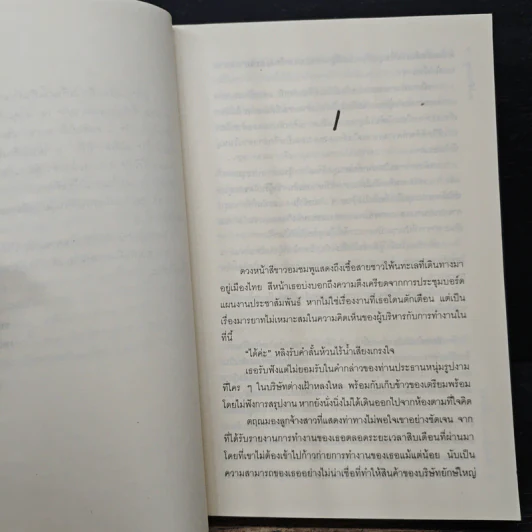 1
ดวงหน้าสีขาวอมชมพูแสดงถึงเชื้อสายชาวโพ้นทะเลที่เดินทางมา
อยู่เมืองไทย สีหน้าเธอบ่งบอกถึงความตึงเครียดจากการประชุมบอร์ด
แผนงานประชาสัมพันธ์ หากไม่ใช่เรื่องงานที่เธอโดนตักเตือน แต่เป็น
เรื่องมารยาทไม่เหมาะสมในความคิดเห็นของผู้บริหารกับการทำงานใน
ที่นี้
"ได้ค่ะ" หลิงรับคำสั้นห้วนไร้น้ำเสียงเกรงใจ
เธอรับฟังแต่ไม่ยอมรับในคำกล่าวของท่านประธานหนุ่มรูปงาม
ที่ใคร ๆ ในบริษัทต่างเฝ้าหลงใหล พร้อมกับเก็บข้าวของเตรียมพร้อม
โดยไม่ฟังการสรุปงาน หากยังนั่งนิ่งไม่ได้เดินออกไปจากห้องตามที่ใจคิด
ตฤณมองลูกจ้างสาวที่แสดงท่าทางไม่พอใจเขาอย่างชัดเจน จาก
ที่ได้รับรายงานการทำงานของเธอตลอดระยะเวลาสิบเดือนที่ผ่านมา
โดยที่เขาไม่ต้องเข้าไปก้าวก่ายการทำงานของเธอแม้แต่น้อย นับเป็น
ความสามารถของเธออย่างไม่น่าเชื่อที่ทำให้สินค้าของบริษัทยักษ์ใหญ่